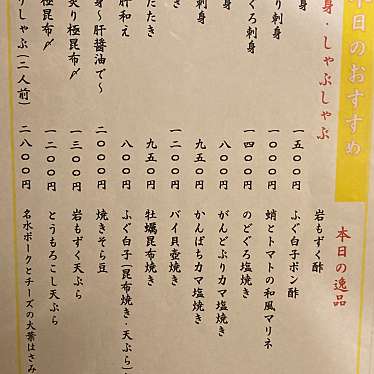 本日のおすすめ
身・しゃぶしゃぶ
一五〇〇円
り刺身 一〇〇〇円
くろ刺身 一四〇〇円
身 八〇〇円
刺身 九五〇円
き 一二〇〇円
たたき 九五〇円
肝和え 八〇〇円
身〜肝醤油で〜 二〇〇〇円
炙り極昆布〆 一三〇〇円
極昆布〆 一二〇〇円
りしゃぶ(二人前) 二八〇〇円
本日の逸品
岩もずく酢
ふぐ白子ポン酢
蛸とトマトの和風マリネ
のどぐろ塩焼き
がんどぶりカマ塩焼き
かんぱちカマ塩焼き
バイ貝壺焼き
牡蠣昆布焼き
ふぐ白子(昆布焼き・天ぷら)
焼きそら豆
岩もずく天ぷら
とうもろこし天ぷら
名水ポークとチーズの大葉はさみ